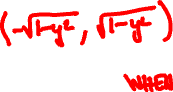 (-√1-y², √1-y²)
WHEN